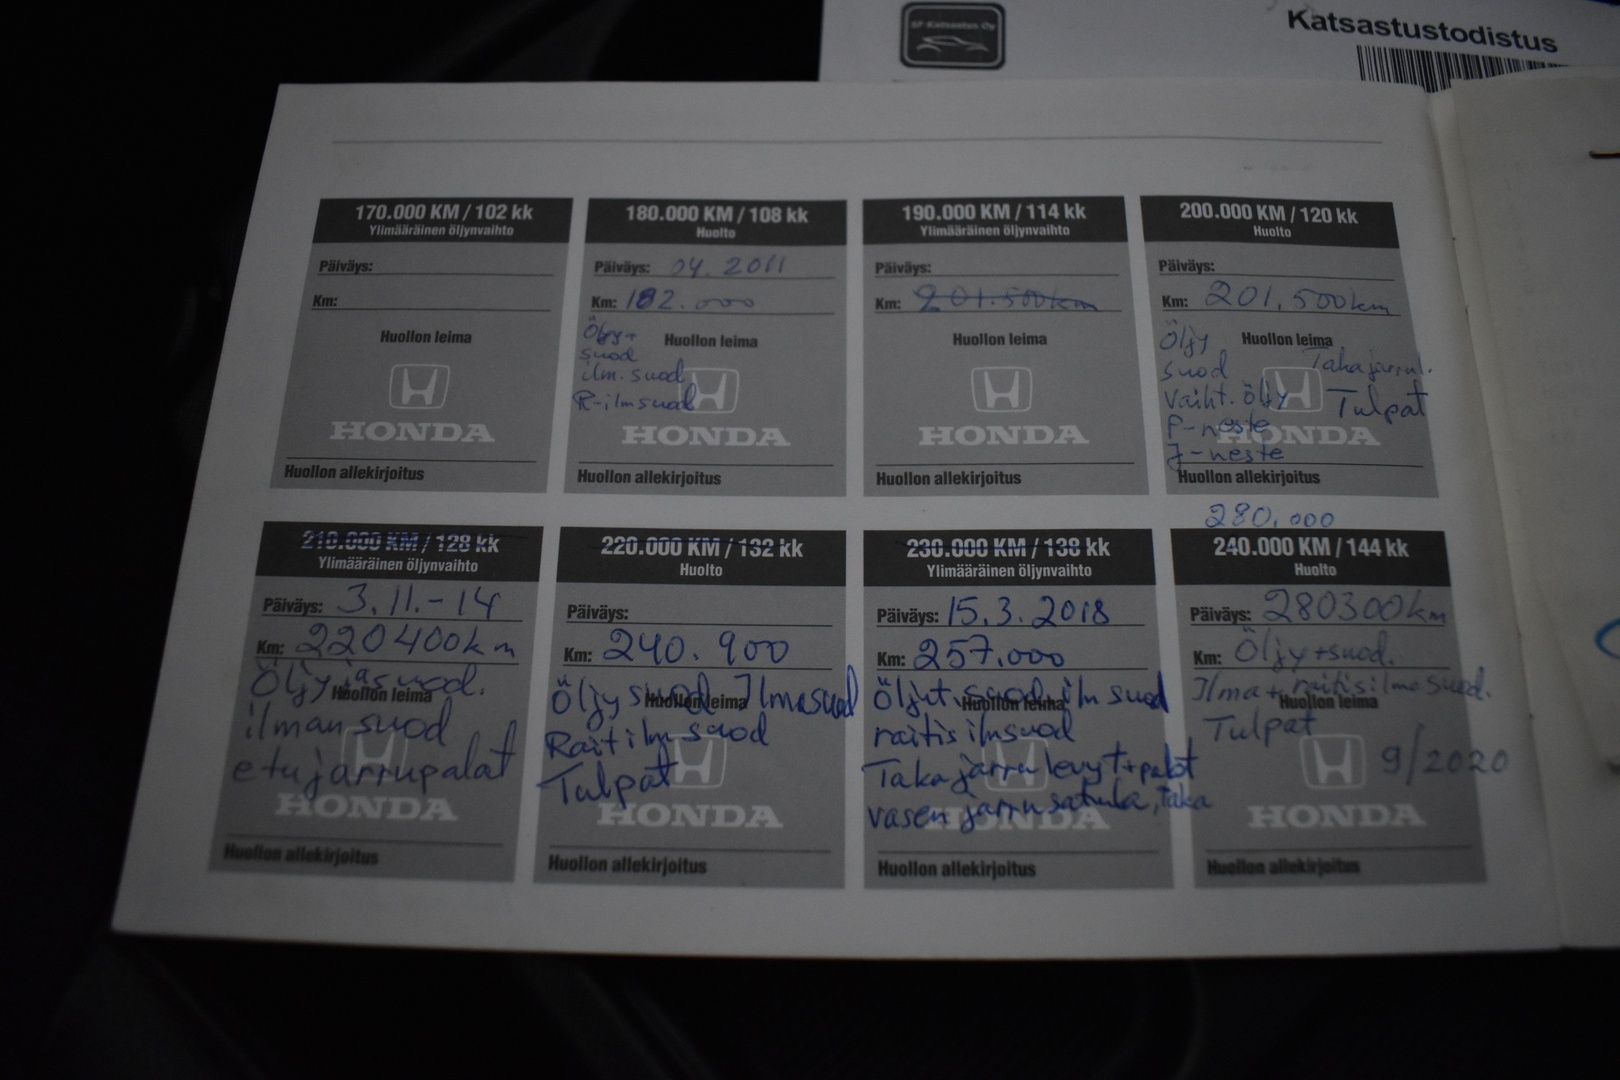 SF-Katsastus Oy
Katsastustodistus
170.000 KM / 102 kk
Ylimääräinen öljynvaihto
Päiväys:
Km:
Huollon leima
HONDA
Huollon allekirjoitus
180.000 KM / 108 kk
Huolto
Päiväys: 04. 2011
Km: 182.000
Öljy+
Huollon leima
suod
ilm. suod
R-ilmsuod
HONDA
Huollon allekirjoitus
190.000 KM / 114 kk
Ylimääräinen öljynvaihto
Päiväys:
Km: 201.500km
Huollon leima
HONDA
Huollon allekirjoitus
200.000 KM / 120 kk
Huolto
Päiväys:
Km: 201,500km
Öljy
Huollon leima
suod
Takajarrul.
Vaiht. öljy
Tulpat
P-neste
HONDA
J-neste
Huollon allekirjoitus
210.000 KM / 128 kk
Ylimääräinen öljynvaihto
Päiväys: 3.11.-14
Km: 220400km
Öljy ja suod.
Huollon leima
ilman suod
etujarrupalat
HONDA
Huollon allekirjoitus
220.000 KM / 132 kk
Huolto
Päiväys:
Km: 240.900
Öljy suod Ilmasuod
Huollon leima
Rait ilm suod
Tulpat
HONDA
Huollon allekirjoitus
230.000 KM / 138 kk
Ylimääräinen öljynvaihto
Päiväys: 15.3.2018
Km: 257.000
Öljyt suod ilm suod
Huollon leima
raitis ilmsuod
Takajarru levyt+palat
vasen jarru satula, taka
HONDA
Huollon allekirjoitus
280,000
240.000 KM / 144 kk
Huolto
Päiväys: 280300km
Km: Öljy+suod.
Ilma+raitisilmasuod.
Huollon leima
Tulpat
9/2020
HONDA
Huollon allekirjoitus